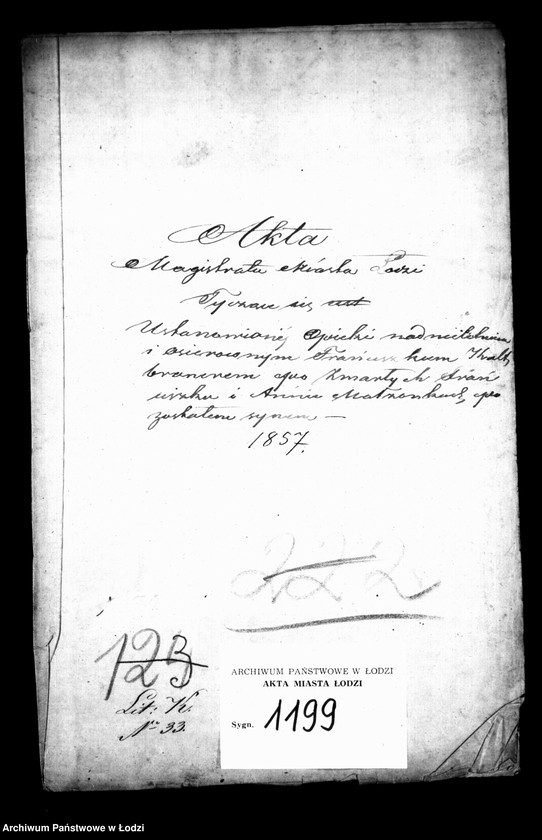 Akta
Magistratu Miasta Łodzi
Tyczące się
Ustanowionej Opieki nad nieletnim
i osieroconym Franciszkiem
po zmarłych Fran
ciszku i Annie Małżonkach, po
zostałem synem —
1857.
222
123
Lit: K.
Nr 33.
ARCHIWUM PAŃSTWOWE W ŁODZI
AKTA MIASTA ŁODZI
Sygn. 1199
Archiwum Państwowe w Łodzi
Archiwum Państwowe w Łodzi